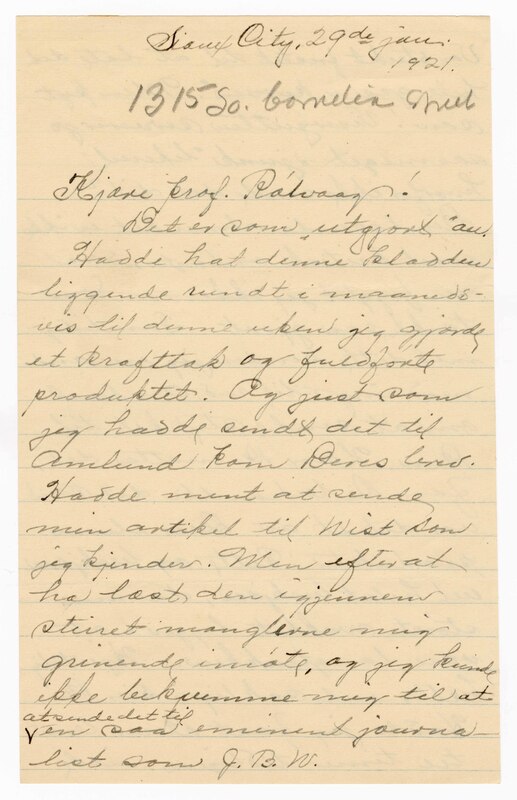 Sioux City, 29de jan.
1921.
1315 So. Cornelia
Kjære prof. Rølvaag!
Det er som "utgjort" au.
Hadde hat denne kladden
liggende rundt i maaneds-
vis til denne uken jeg gjorde
et krafttak og fuldførte
produktet. Og just som
jeg hadde sendt det til
Amlund kom Deres brev.
Hadde ment at sende
min artikel til Wist som
jeg kjender. Men efterat
ha læst den igjennem
stirret manglerne mig
grinende imøte, og jeg kunde
ikke bekvemme meg til at
at sende det til
en saa eminent journa-
list som J. B. W.